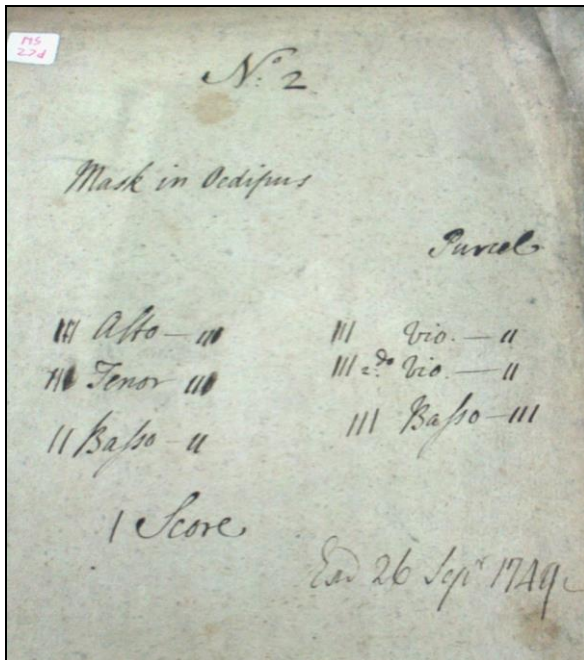 MS
22d
No. 2
Mask in Oedipus
Purcel
III Alto — III
III Tenor III
II Basso — II
1 Score
III Vio. — II
III 2.do Vio. — II
III Basso — III
26 Sepr 1749